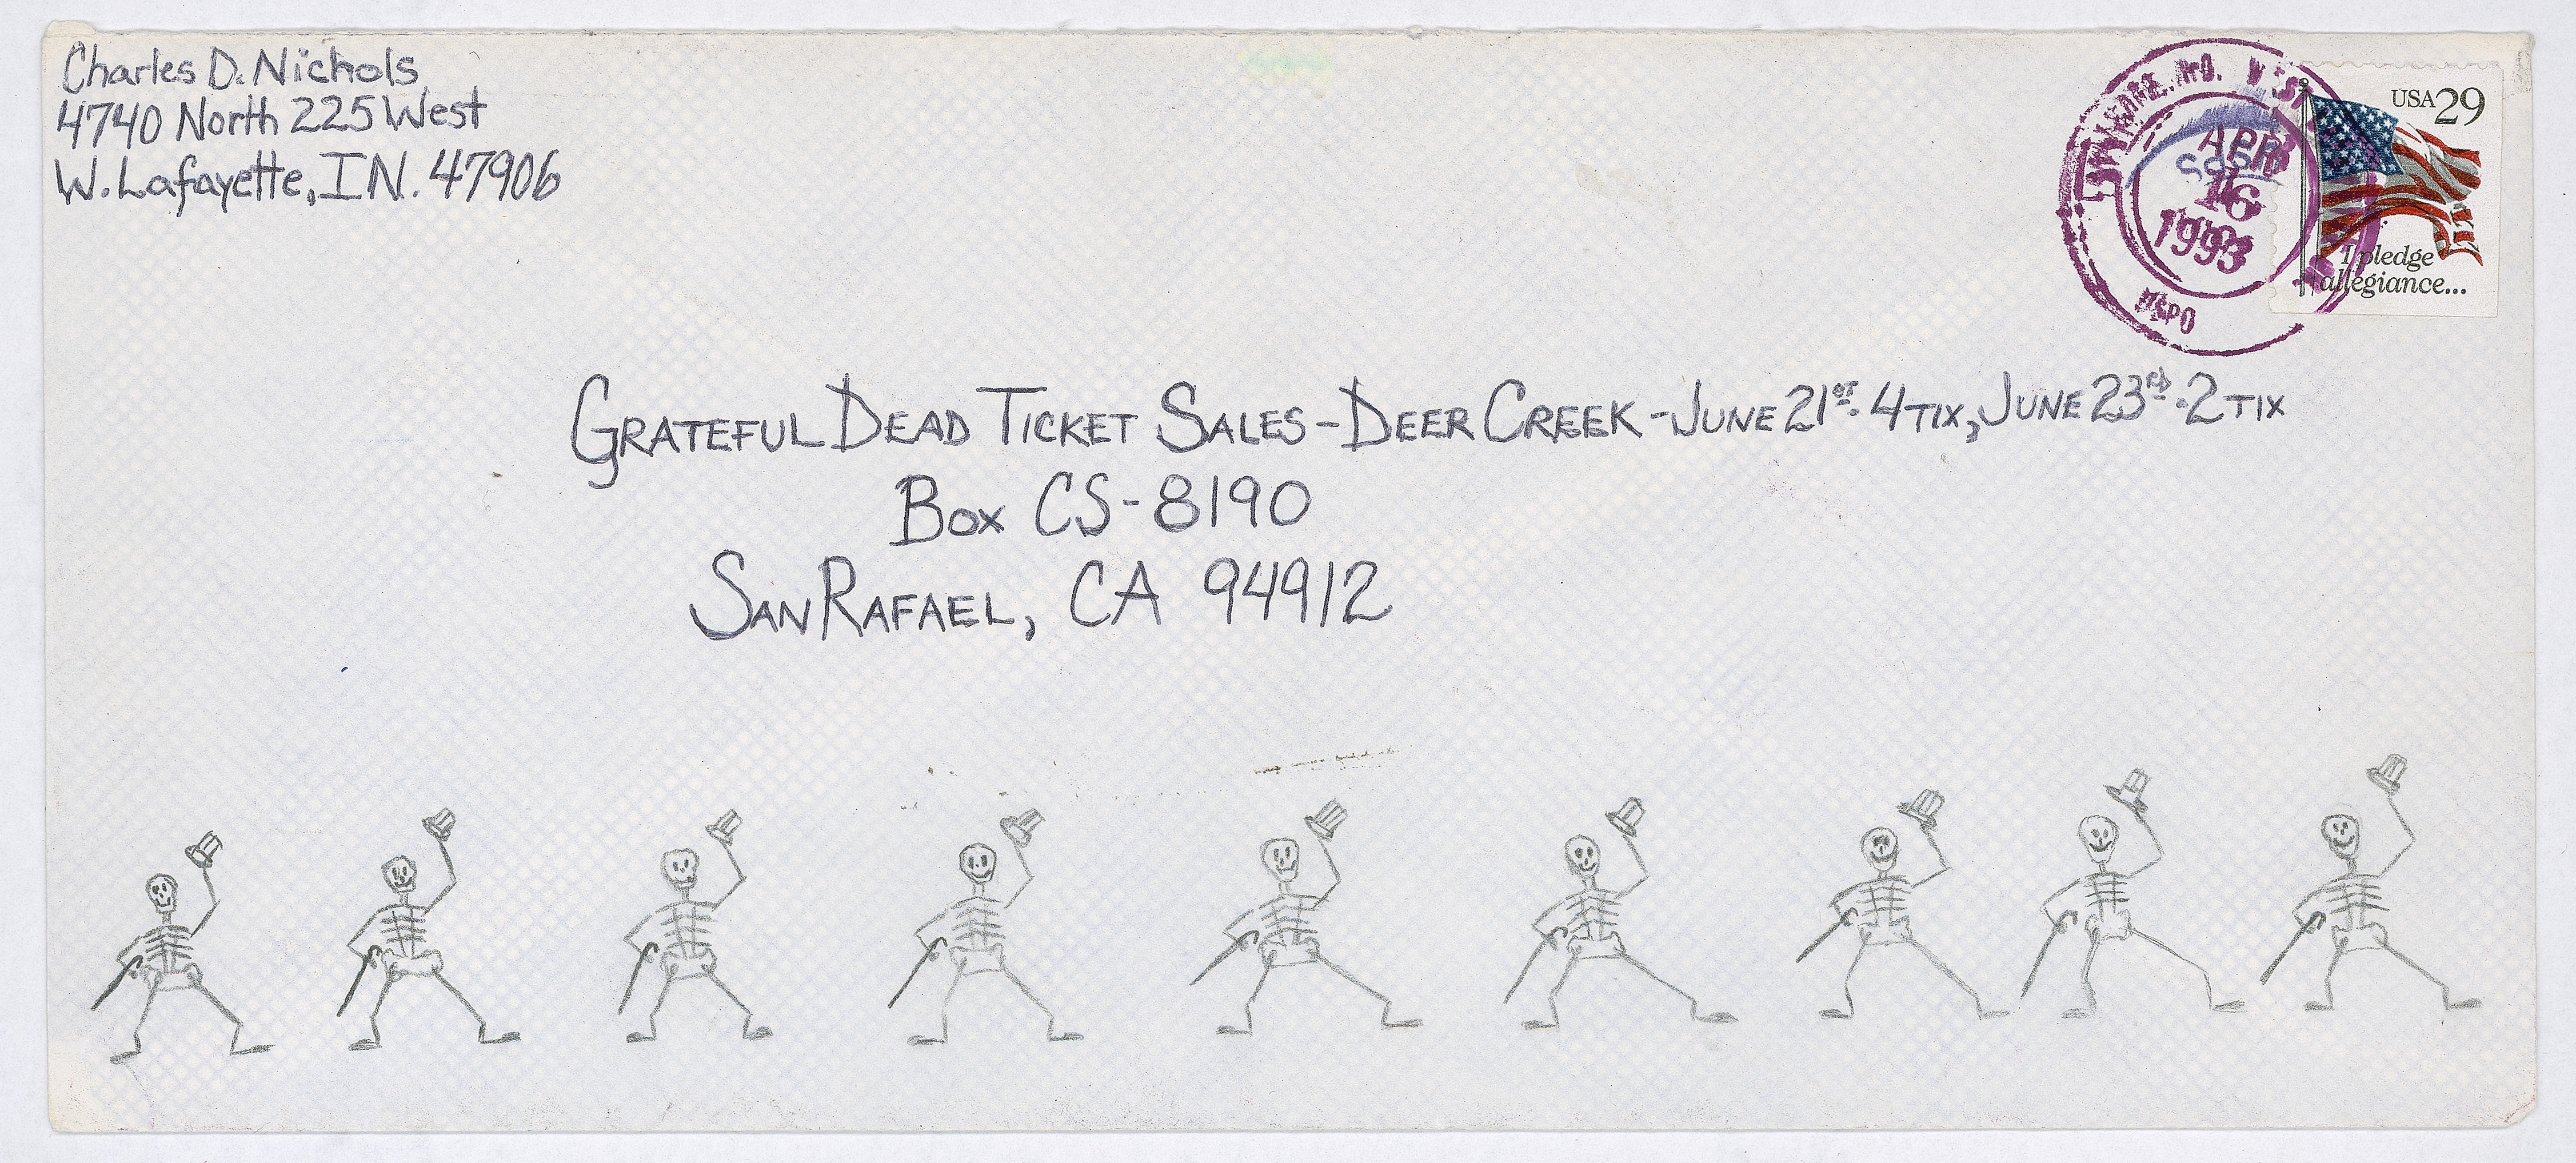 Charles D. Nichols
4740 North 225 West
W. Lafayette, IN. 47906
APR
16
1993
USPO
USA 29
I pledge
allegiance...
GRATEFUL DEAD TICKET SALES - DEER CREEK - JUNE 21ST. 4 TIX, JUNE 23RD. 2 TIX
BOX CS-8190
SAN RAFAEL, CA 94912